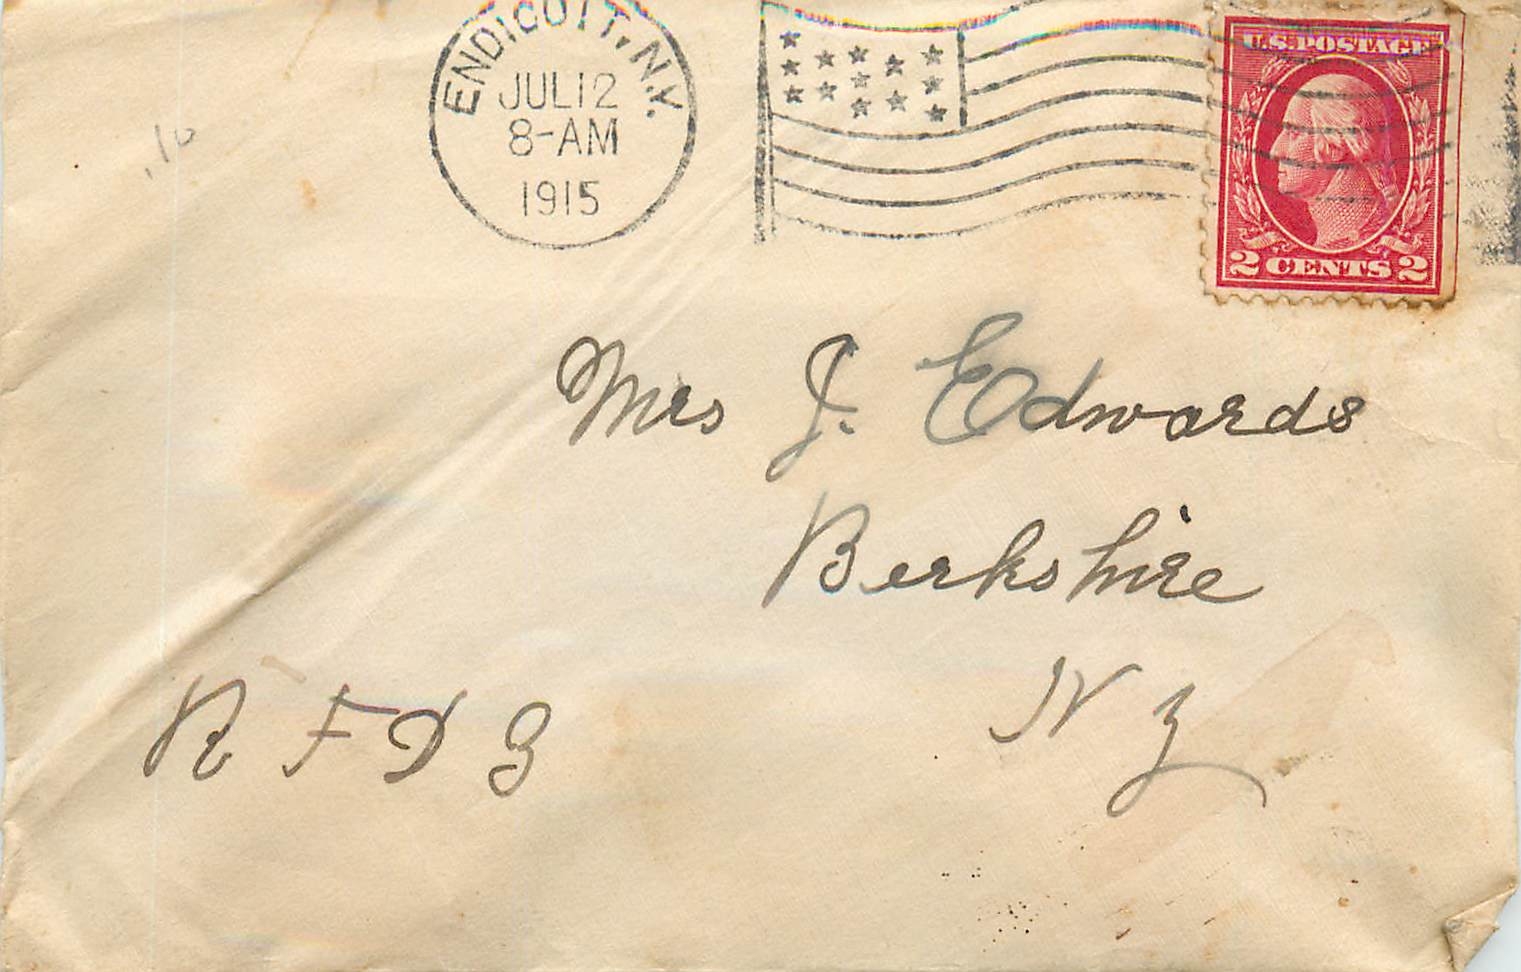 ENDICOTT, N.Y.
JUL 12
8-AM
1915
U.S. POSTAGE
2 CENTS 2
.10
Mrs J. Edwards
Berkshire
N Y
R F D